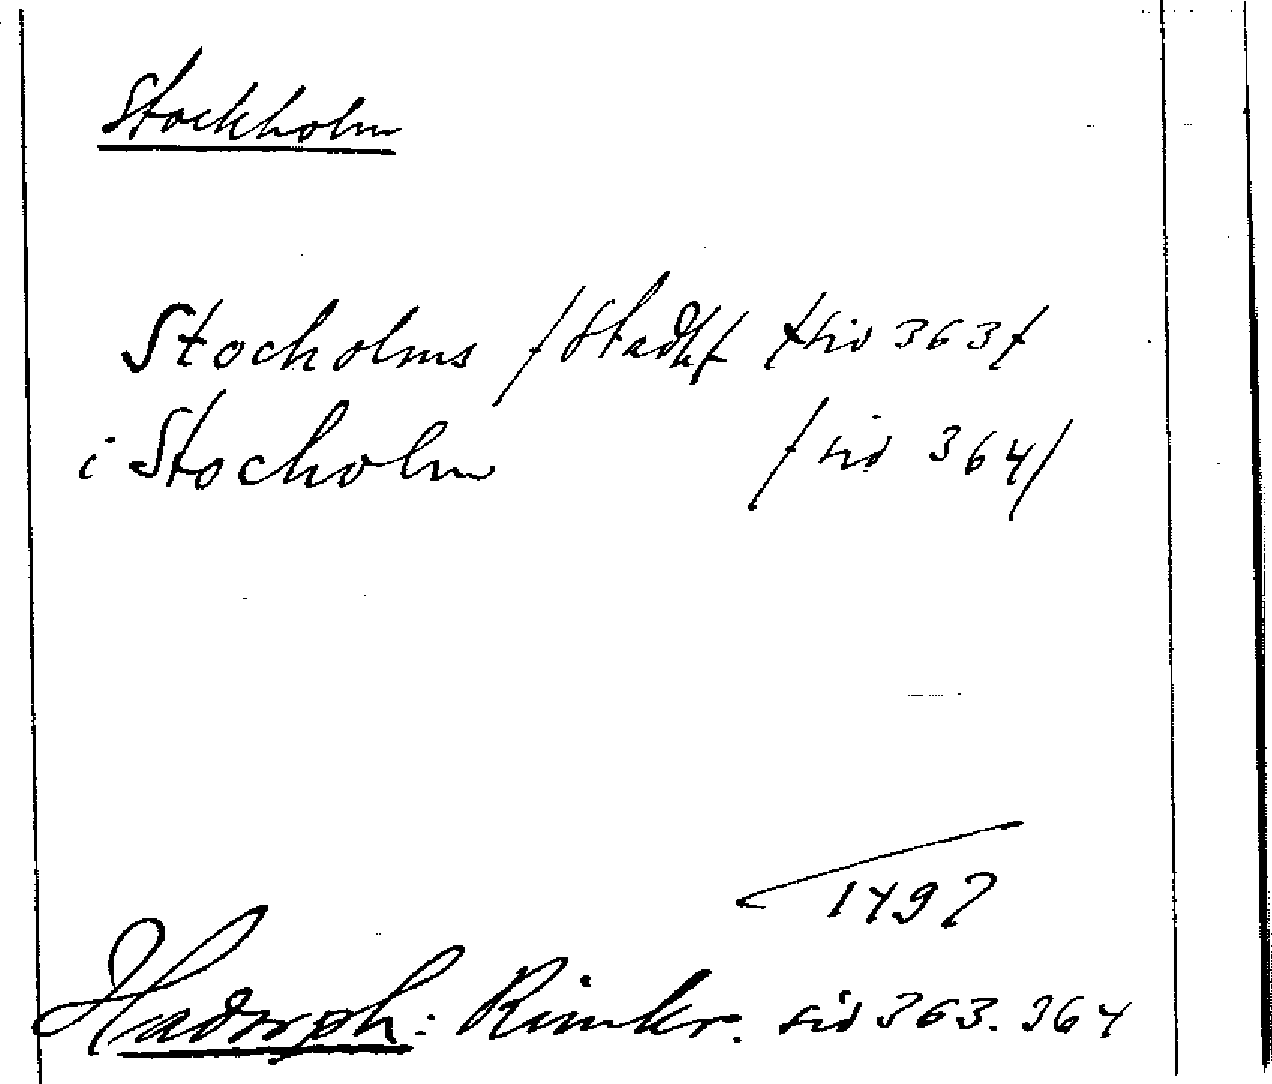 Stockholm
Stocholms /Stadh/ /sid 363/
i Stocholm /sid 364/
1497
Hadorph: Rimkr. sid 363. 364